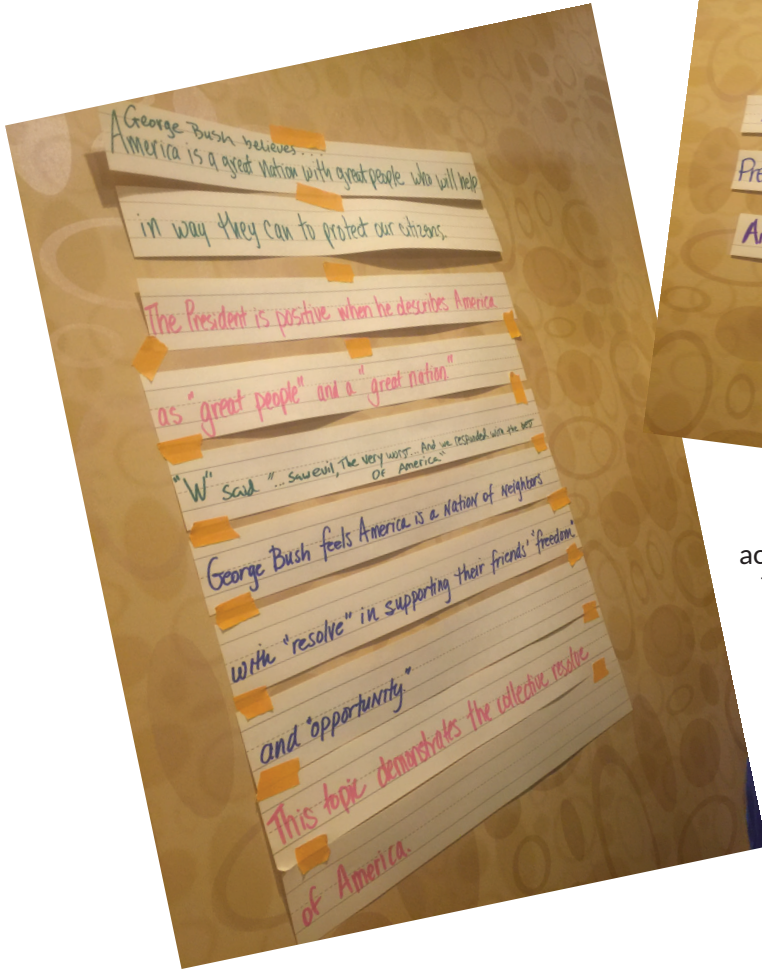 George Bush believes...
America is a great nation with great people who will help
in way they can to protect our citizens.
The President is positive when he describes America
as "great people" and a "great nation"
"W" said "...saw evil, The very worst...And we responded with the best
Of America"
George Bush feels America is a Nation of Neighbors
with "resolve" in supporting their friends' "freedom"
and "opportunity."
This topic demonstrates the collective resolve
of America.